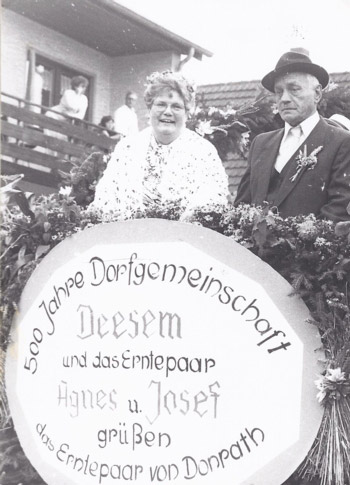 500 Jahre Dorfgemeinschaft
Deesem
und das Erntepaar
Agnes u. Josef
grüßen
das Erntepaar von Donrath